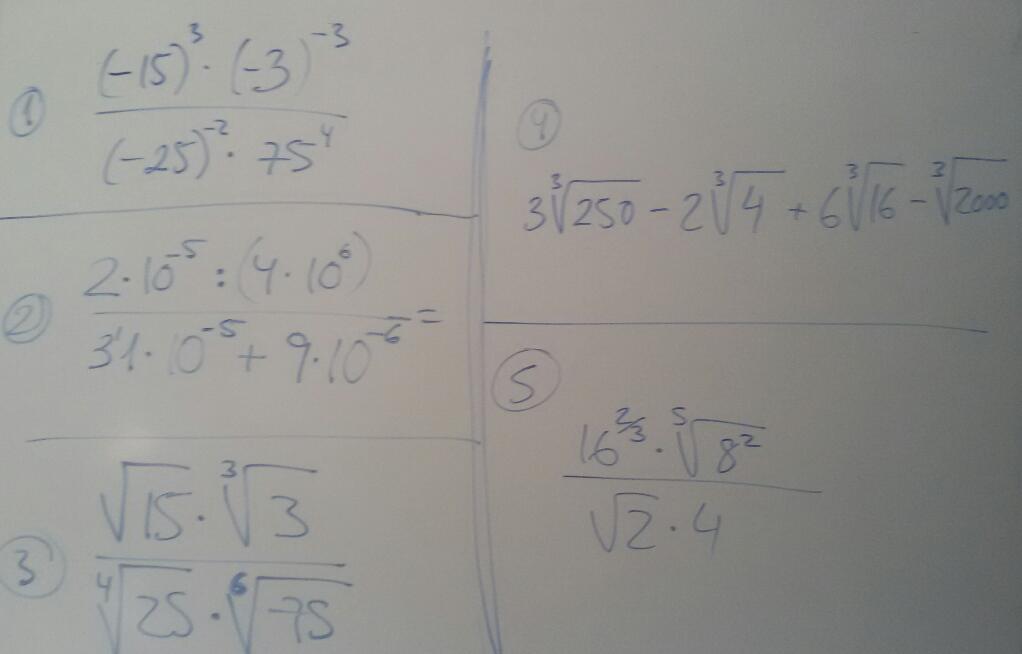 ① (-15)³ · (-3)⁻³
(-25)⁻² · 75⁴
② 2·10⁻⁵ : (4·10⁶)
3'1·10⁻⁵ + 9·10⁻⁶ =
③ √15 · ³√3
⁴√25 · ⁶√75
④
3³√250 - 2³√4 + 6³√16 - ³√2000
⑤
16^(2/3) · ⁵√8²
√2 · 4